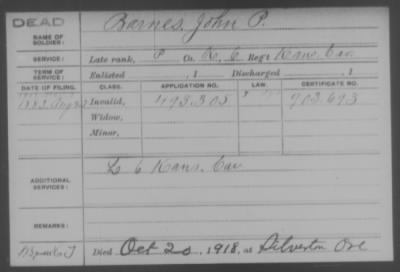 DEAD
NAME OF SOLDIER: Barnes, John P.
SERVICE: Late rank, P Co. K, 6 Reg't Kans. Cav.
TERM OF SERVICE: Enlisted , 1 Discharged , 1
DATE OF FILING. CLASS. APPLICATION NO. LAW. CERTIFICATE NO.
1883 Aug Invalid, 493.303 903.693
Widow,
Minor,
ADDITIONAL SERVICES: L 6 Kans. Cav
REMARKS:
Died Oct 20, 1918, at Silverton Ore